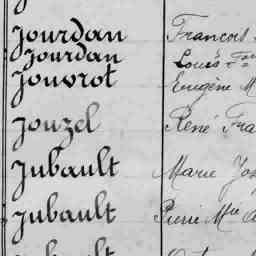 Jourdan François
Jourdan Louis Fois
Jouvrot Eugène M
Jouzel René Fra
Jubault Marie Jos
Jubault Pierre Mie A